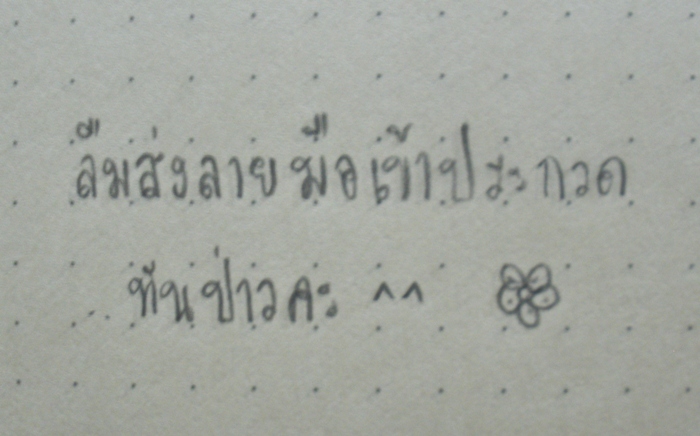 ลืมส่งลายมือเข้าประกวด
..ทันป่าวคะ ^^